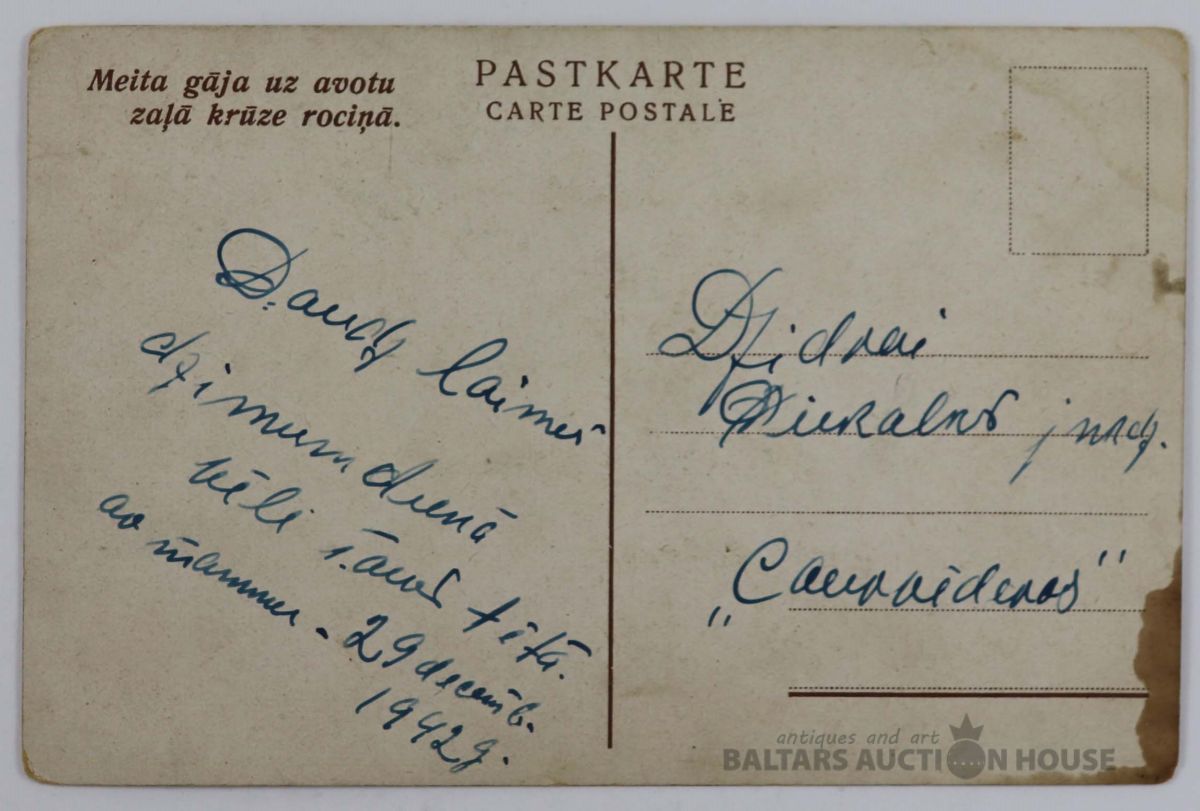 Meita gāja uz avotu
zaļā krūze rociņā.
PASTKARTE
CARTE POSTALE
Daudz laimes
dzimumdienā
vēli Tavs tētā.
ar mammu - 29 decemb.
1942g.
Dzidrai
jnkdz.
antiques and art
BALTARS AUCTION HOUSE